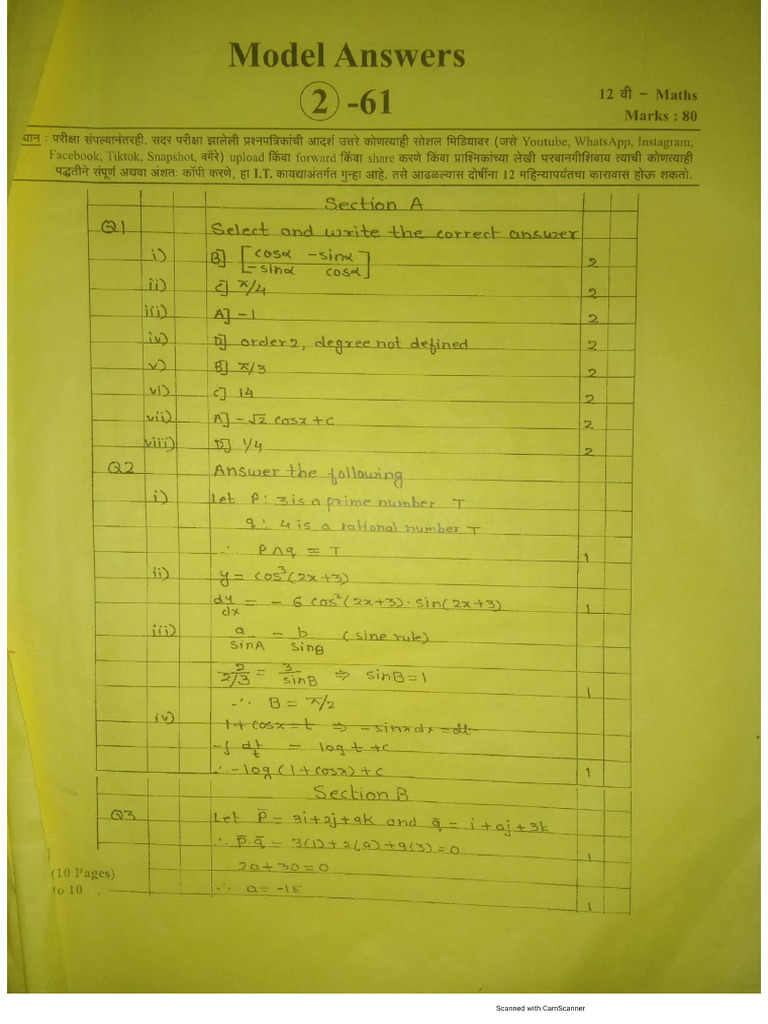 Model Answers
2 -61
12 वी – Maths
Marks : 80
यान : परीक्षा संपल्यानंतरही. सदर परीक्षा झालेली प्रश्नपत्रिकांची आदर्श उत्तरे कोणत्याही सोशल मिडियावर (जसे Youtube, WhatsApp, Instagram,
Facebook, Tiktok, Snapshot, वगैरे) upload किंवा forward किंवा share करणे किंवा प्राश्निकांच्या लेखी परवानगीशिवाय त्याची कोणत्याही
पद्धतीने संपूर्ण अथवा अंशतः कॉपी करणे, हा I.T. कायद्याअंतर्गत गुन्हा आहे. तसे आढळल्यास दोषींना 12 महिन्यापर्यतचा कारावास होऊ शकतो.
Section A
Q1 Select and write the correct answer
i) B] [cosα -sinα
-sinα cosα] 2
ii) C] π/4 2
iii) A] -1 2
iv) D] order 2, degree not defined 2
v) B] π/3 2
vi) C] 14 2
vii) A] -√2 cosx + c 2
viii) D] 1/4 2
Q2 Answer the following
i) Let P : 3 is a prime number T
q : 4 is a rational number T
∴ P ∧ q = T 1
(ii) y = cos³(2x+3)
dy/dx = - 6 cos²(2x+3) · sin(2x+3) 1
iii) a/sinA = b/sinB (sine rule)
2/2/3 = 3/sinB ⇒ sinB = 1 1
∴ B = π/2
iv) 1 + cosx = t ⇒ -sinx dx = dt
-∫ dt/t = log t + c
∴ -log (1 + cosx) + c 1
Section B
Q3 Let P̄ = 3i + 2j + 9k and q̄ = i + aj + 3k
∴ P̄.q̄ = 3(1) + 2(a) + 9(3) = 0 1
2a + 30 = 0
∴ a = -15 1
(10 Pages)
to 10
Scanned with CamScanner